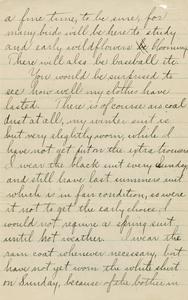 a fine time, to be sure, for
many birds will be here to study
and early wildflowers
There will also be baseball etc.
You would be surprised to
see how well my clothes have
lasted. There is of course no coal
dust at all, my winter suit is
but very slightly worn, while I
have not yet put on the extra trousers
I wear the black suit every Sunday
and still have last summers suit
which is in fair condition, so were
it not to get the early choice, I
would not require a spring suit
until hot weather. I wear the
rain coat whenever necessary, but
have not yet worn the white shirt
on Sunday, because of the bother in